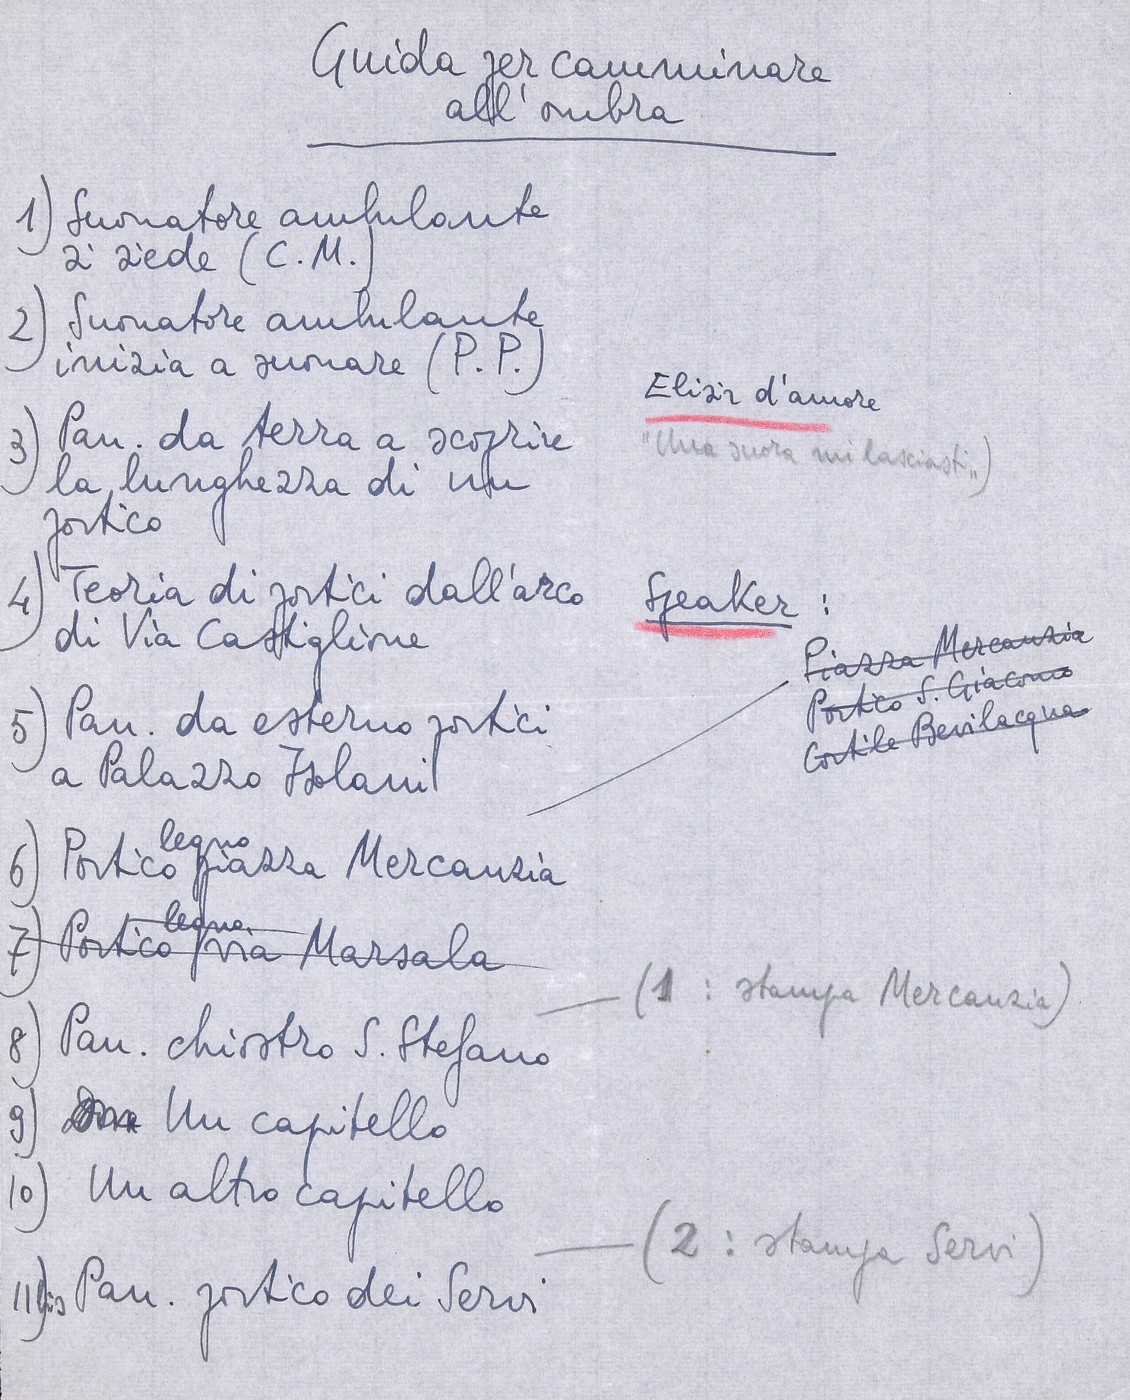 Guida per camminare
all'ombra
1) Suonatore ambulante
si siede (C.M.)
2) Suonatore ambulante
inizia a suonare (P.P.)
Elisir d'amore
"Una suora mi lasciasti")
3) Pan. da terra a scoprire
la lunghezza di un
portico
4) Teoria di portici dall'arco
di Via Castiglione
Speaker :
Piazza Mercanzia
Portico S. Giacomo
Cortile Bevilacqua
5) Pan. da esterno portici
a Palazzo Isolani
legno
6) Portico piazza Mercanzia
legno
7) Portico via Marsala
(1 : stampa Mercanzia)
8) Pan. chiostro S. Stefano
9) Un capitello
10) Un altro capitello
(2 : stampa Servi)
11)bis Pan. portico dei Servi